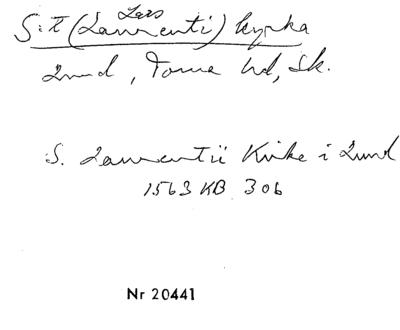 Lars
S:t (Laurentii) kyrka
Lund, Torna hd, Sk.
S. Laurentii Kirke i Lund
1563 KB 306
Nr 20441